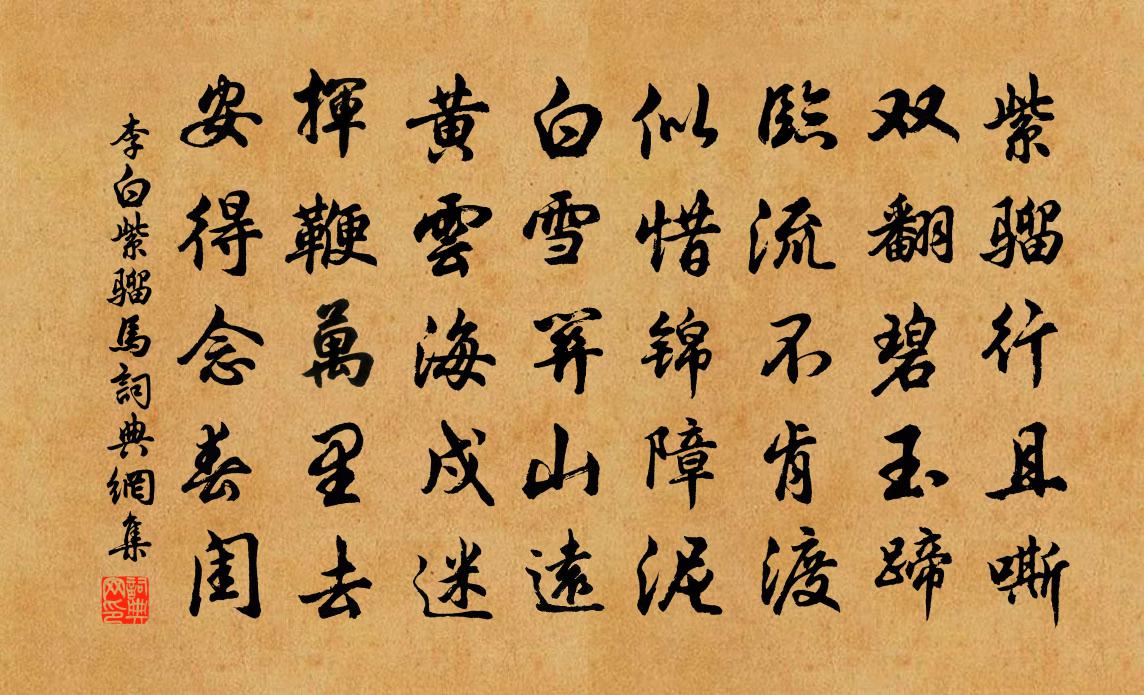 紫骝行且嘶
双翻碧玉蹄
臨流不肯渡
似惜锦障泥
白雪關山遠
黃雲海戍迷
揮鞭萬里去
安得念春閨
李白紫骝馬詞典網集
詞典
网印